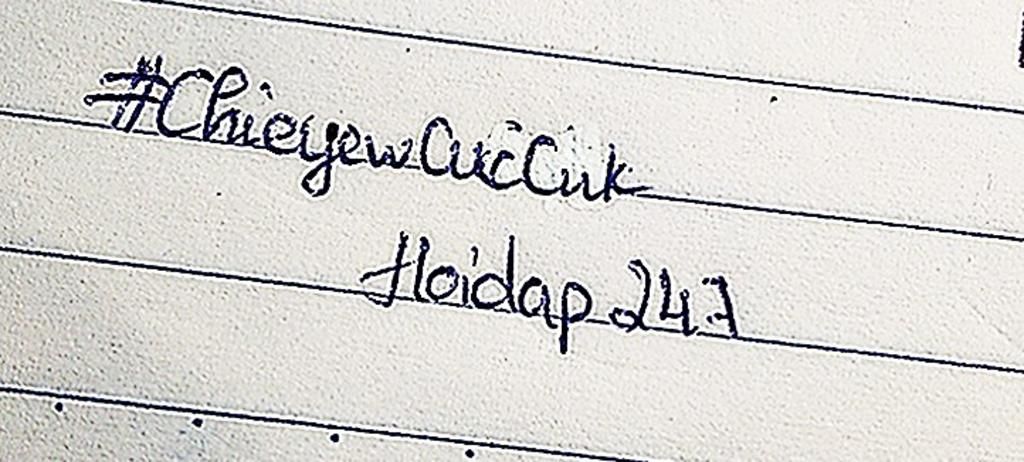 #ChieyewCucCuk
Hoidap 247